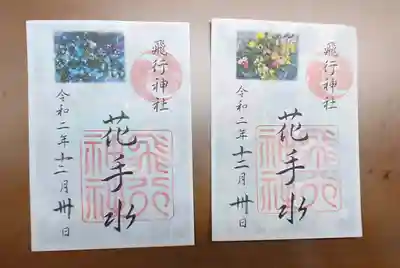 飛行神社
花手水
飛行神社
令和二年十二月卅日
飛行神社
花手水
飛行神社
令和二年十二月卅日